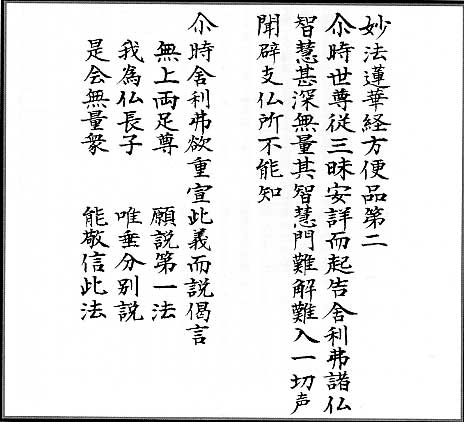 妙法蓮華経方便品第二
尒時世尊従三昧安詳而起告舎利弗諸仏
智慧甚深無量其智慧門難解難入一切声
聞辟支仏所不能知
尒時舎利弗欲重宣此義而説偈言
無上両足尊　願説第一法
我為仏長子　唯垂分別説
是会無量衆　能敬信此法